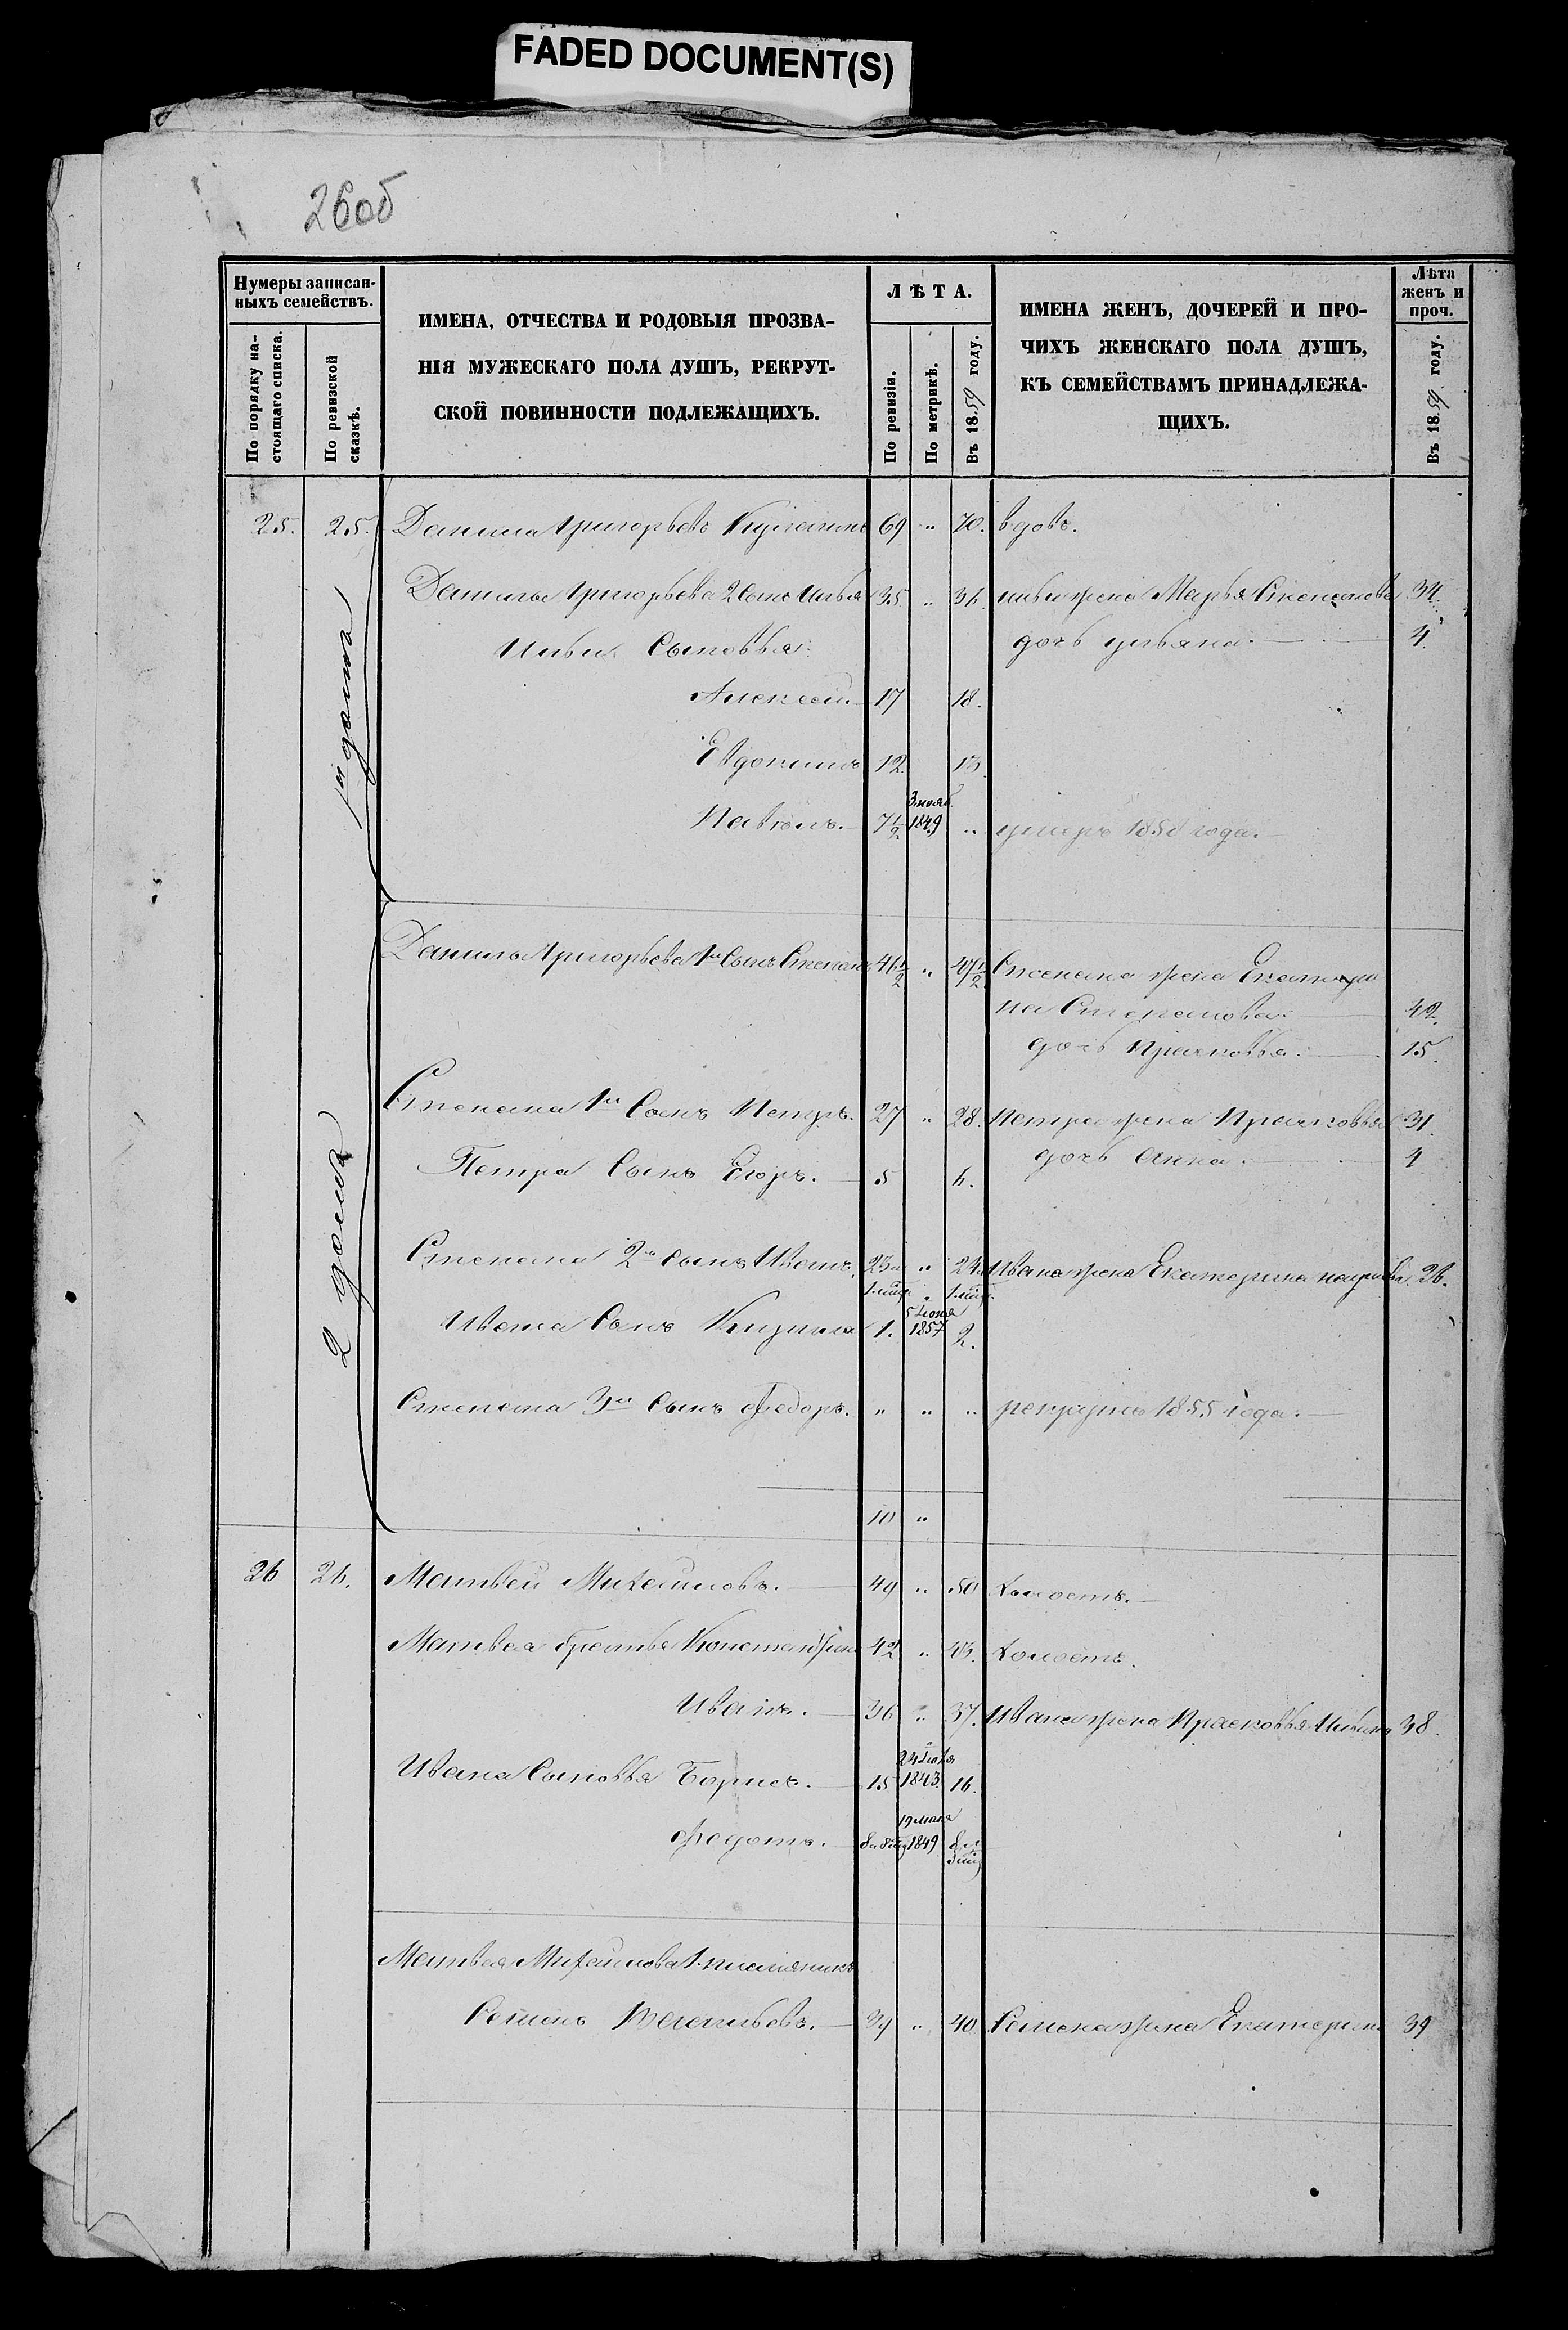 FADED DOCUMENT(S)
26об
Нумеры записан-
ныхъ семействъ.
По порядку на-
стоящаго списка.
По ревизской
сказкѣ.
ИМЕНА, ОТЧЕСТВА И РОДОВЫЯ ПРОЗВА-
НІЯ МУЖЕСКАГО ПОЛА ДУШЪ, РЕКРУТ-
СКОЙ ПОВИННОСТИ ПОДЛЕЖАЩИХЪ.
ЛѢТА.
По ревизіи.
По метрикѣ.
Въ 1859 году.
ИМЕНА ЖЕНЪ, ДОЧЕРЕЙ И ПРО-
ЧИХЪ ЖЕНСКАГО ПОЛА ДУШЪ,
КЪ СЕМЕЙСТВАМЪ ПРИНАДЛЕЖА-
ЩИХЪ.
Лѣта
женъ и
проч.
Въ 1859 году.
25. 25. Данила Григорьевъ 69 " 70. вдовъ.
1й дома
Данилы Григорьева 2 сынъ Илья 35 " 36. Ильи жена Марья Степанова 34.
Ильи Сыновья: дочь Ульяна. 4.
Алексей. 17 18.
Евдокимъ 12. 13.
3 нояб.
Павелъ. 7½ 1849 " умеръ 1858 года.
Данилы Григорьева 1й Сынъ Степанъ 46½ " 47½ Степана жена Екатери
на Степанова. 42.
дочь Прасковья. 15.
2 дома
Степана 1й Сынъ Петръ. 27 " 28. Петра жена Прасковья 31.
Петра Сынъ Егоръ. 5 6. дочь Анна. 4
Степана 2й сынъ Иванъ. 23 и " 24 и Ивана жена Екатерина 26.
1. мѣс. " 1. мѣс.
5 Іюня
Ивана Сынъ Кирила 1. 1857 2.
Степана 3й Сынъ Федоръ. " " " рекрутъ 1855 года.
10 "
26 26. Матвей Михайловъ. 49 " 50 холостъ.
Матвея братья Константинъ 42 " 43. холостъ.
Иванъ. 36 " 37. Ивана жена Прасковья Ильина 38.
24 Іюля
Ивана Сыновья Борисъ. 15 1843 16.
19 мая
Федотъ. 8 и 8 мѣс 1849 8 и
8 мѣс
Матвея Михайлова 1. племяникъ
Семенъ Васильевъ. 39 " 40. Семена жена Екатерина 39